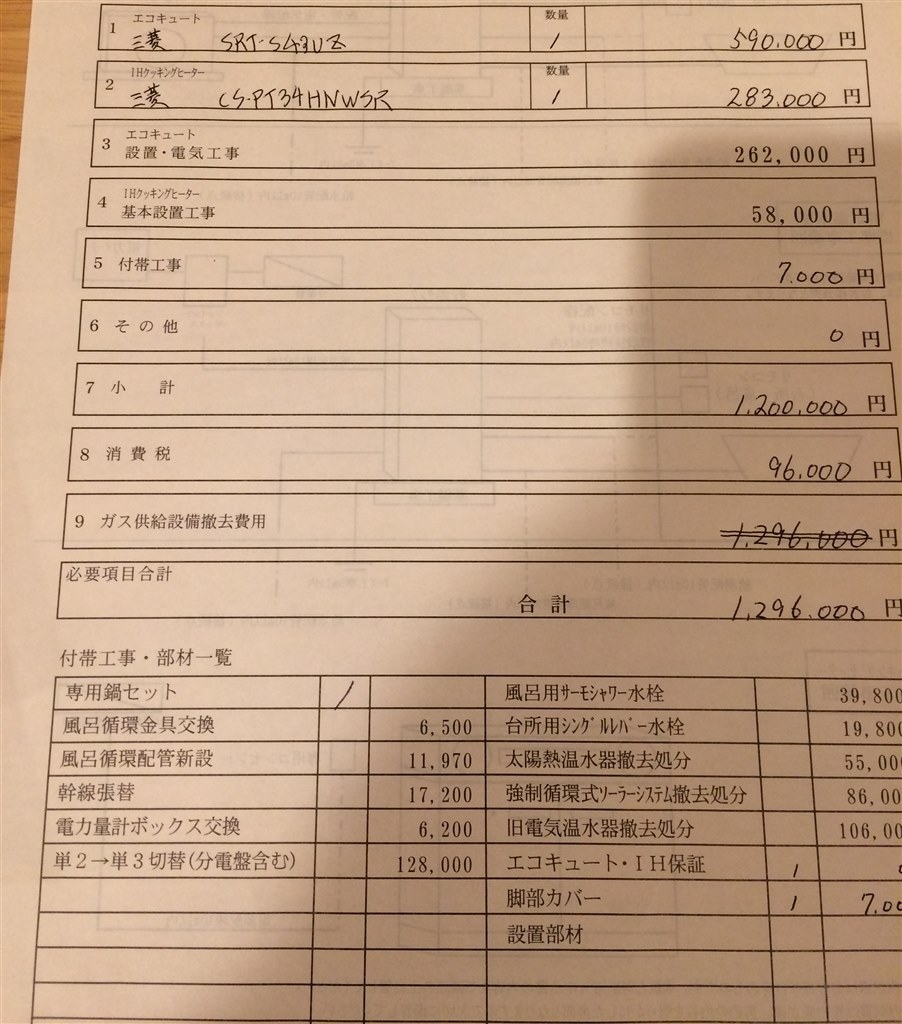 1 エコキュート 数量
三菱 SRT-S43UZ 1 590.000 円
2 IHクッキングヒーター 数量
三菱 CS-PT34HNWSR 1 283.000 円
3 エコキュート
設置・電気工事 262,000 円
4 IHクッキングヒーター
基本設置工事 58,000 円
5 付帯工事 7.000 円
6 その他 0 円
7 小 計 1.200.000 円
8 消費税 96.000 円
9 ガス供給設備撤去費用 1.296.000 円
必要項目合計
合計 1.296.000 円
付帯工事・部材一覧
専用鍋セット 1 風呂用サーモシャワー水栓 39,800
風呂循環金具交換 6,500 台所用シングルレバー水栓 19,800
風呂循環配管新設 11,970 太陽熱温水器撤去処分 55,00
幹線張替 17,200 強制循環式ソーラーシステム撤去処分 86,00
電力量計ボックス交換 6,200 旧電気温水器撤去処分 106,00
単2→単3切替(分電盤含む) 128,000 エコキュート・IH保証 1
脚部カバー 1 7.00
設置部材